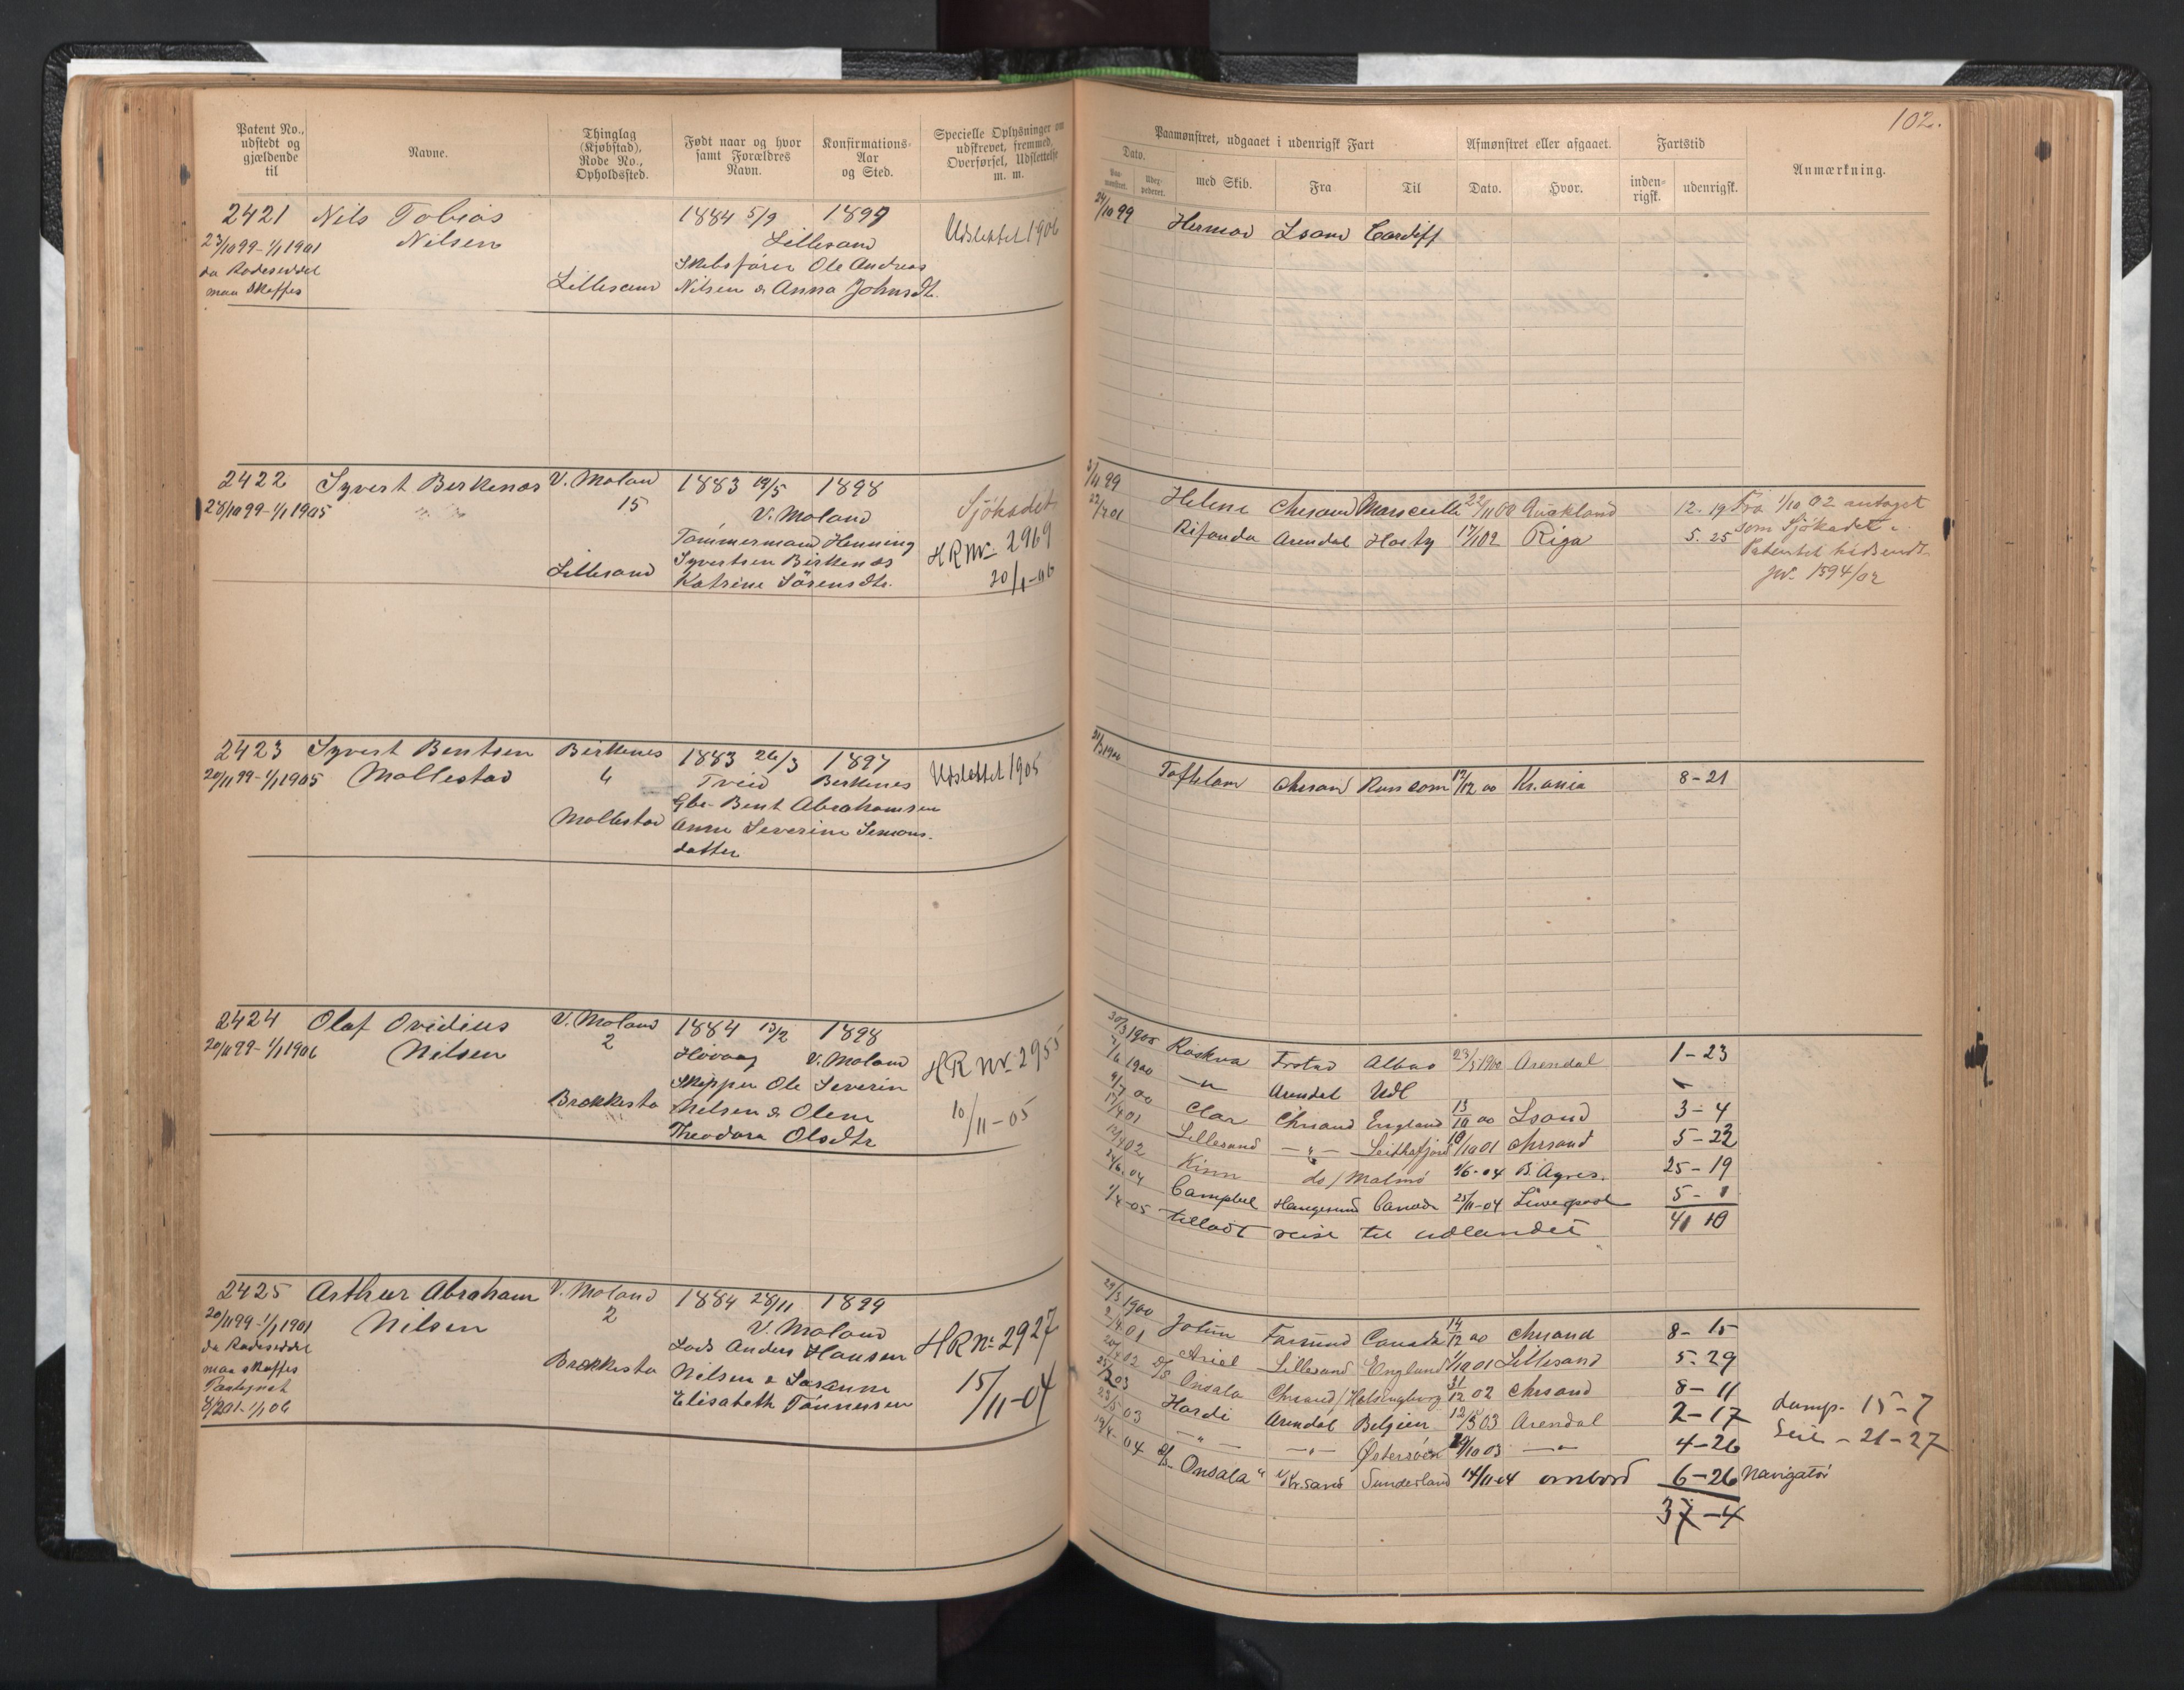 102.
Patent No., udstedt og gjældende til
Navne.
Thinglag (Kjøbstad), Rode No., Opholdssted.
Født naar og hvor samt Forældres Navn.
Konfirmations-Aar og Sted.
Specielle Oplysninger om udskrevet, fremmed, Overførsel, Udslettelse m. m.
Paamønstret, udgaaet i udenrigsk Fart
Afmønstret eller afgaaet.
Fartstid
Anmærkning.
Dato.
med Skib.
Fra
Til
Dato.
Hvor.
inden-rigsk.
udenrigsk.
2421 Nils Tobias 1884 5/9 1899
23/10 99 - 1/1 1901 Nilsen Lillesand Udslettet 1906
da Rodeseddel Skibsfører Ole Andreas
maa skaffes Lillesand Nilsen & Anna Johnsdtr.
24/10 99 Hermod Lsand Cardiff
2422 Syvert Berkenæs V. Moland 1883 19/5 1898
28/10 99 - 1/1 1905 15 V. Moland Sjökadet
Tømmermand Henning HR No 2969
Lillesand Syvertsen Birkenæs 20/1-06
Katrine Sörensdtr.
3/11 99 Helene Chrsand Marseille 22/11 00 Auckland 12. 19 Fra 1/10 02 antaget
22/7 01 Rifonda Arendal Harty 17/1 02 Riga 5. 25 som Sjökadet
Patentet hidsendt
jr. 1594/02
2423 Syvert Bentsen Birkenes 1883 26/3 1897
20/11 99 - 1/1 1905 Mollestad 4 Tveid Birkenes Udslettet 1905
Gbr. Bent Abrahamsen
Mollestad Anne Severine Simons-
datter
31/3 1900 Toftelam Chrsand Runcorn 12/12 00 Kr.ania 8-21
2424 Olaf Ovidius V. Moland 1884 13/2 1898
20/11 99 - 1/1 1906 Nilsen 2 Høvaag V. Moland HR No 2955
Skipper Ole Severin
Brækkestø Nilsen & Olene 10/11-05
Theodora Olsdtr
Roskva Alboa 23/5 1900 Arendal 1-23
1900 —"— Arendal Udl
9/7 00 Clar Chrsand England 13/10 00 Lsand 3-4
17/4 01 Lillesand —"— 10/10 01 Chrsand 5-22
Kinn do / Malmö 2/6-04 B. Ayres. 25-19
Campbel Haugesund Canada 25/11-04 Liverpool 5-1
1/4-05 tilladt reise til udlandet 41 10
2425 Arthur Abraham V. Moland 1884 28/11 1899
20/11 99 - 1/1 1901 Nilsen 2 V. Moland HR No 2927
da Rodeseddel Lods Anders Hansen
maa skaffes Brækkestø Nilsen & Susanne 15/11-04
Elisabeth Tönnesen
29/3 1900 Jotun Farsund Canada 14/12 00 Chrsand 8-15
2/4 01 Ariel Lillesand England 1/10 01 Lillesand 5-29
D/S Onsala Chrsand/Helsingborg 31/12 02 Chrsand 8-11
Hardi Arendal Belgien 12/5 03 Arendal 2-17 damp- 15-7
23/5 03 —"— —"— Østersöen 19/10 03 —"— 4-26 Seil - 21-27
19/4-04 D/S Onsala" Kr.sand Sunderland 14/11 04 ombord 6-26 Navigatör
37-4